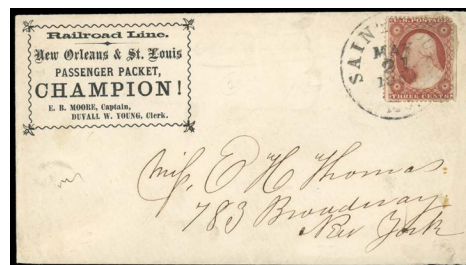 Railroad Line.
New Orleans & St. Louis
PASSENGER PACKET,
CHAMPION!
E. B. MOORE, Captain,
DUVALL W. YOUNG, Clerk.
SAIN
MA
21
THREE CENTS
E H Thomas
783 Broadway
New York